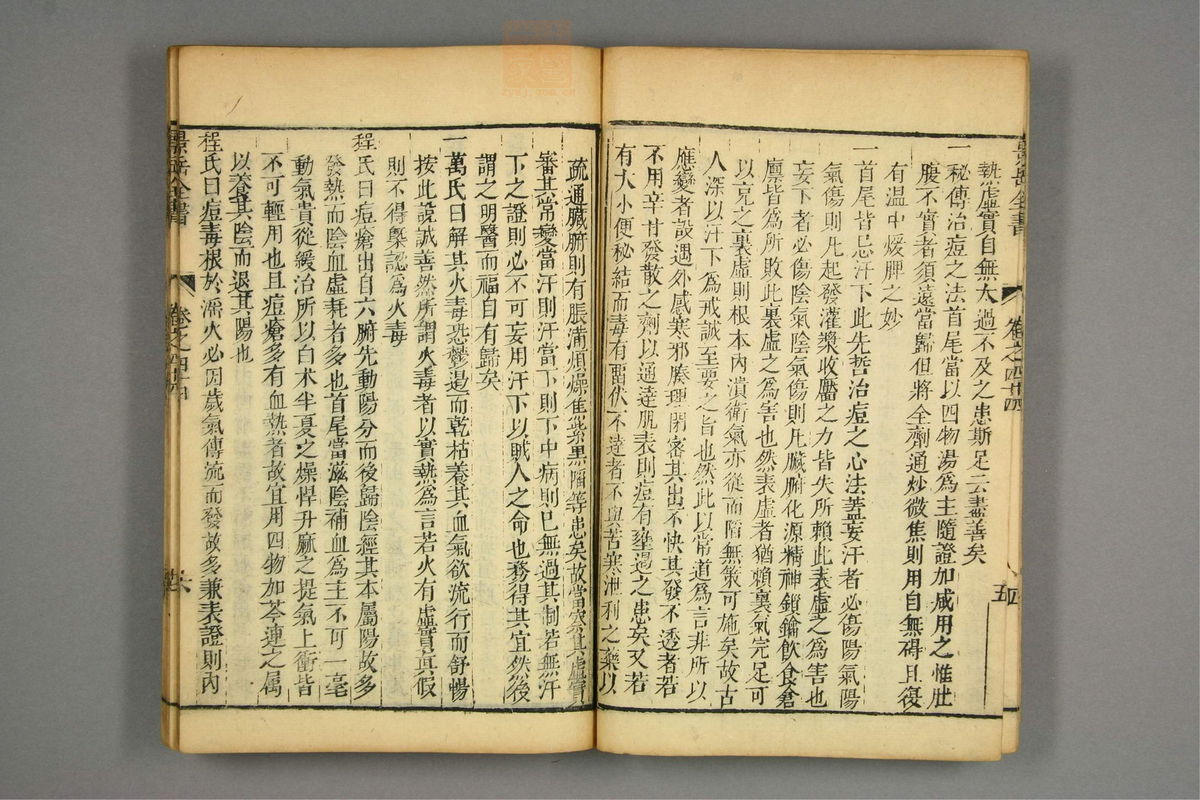 熱虛實自無太過不及之患斯足云盡善矣
一秘傳治痘之法首尾當以四物湯爲主隨證加减用之惟肚
腹不實者須遠當歸但將全劑通炒微焦則用自無碍且復
有溫中煖脾之妙
一首尾皆忌汗下此先哲治痘之心法蓋妄汗者必傷陽氣陽
氣傷則凡起發灌漿收靨之力皆失所賴此表虛之爲害也
妄下者必傷陰氣陰氣傷則凡臟腑化源精神鎖鑰飲食倉
廩皆爲所敗此裏虛之爲害也然表虛者猶賴裏氣完足可
以克之裏虛則根本內潰衛氣亦從而陷無策可施矣故古
人深以汗下爲戒誠至要之旨也然此以常道爲言非所以
應變者設遇外感寒邪腠理閉密其出不快其發不透者若
不用辛甘發散之劑以通達肌表則痘有壅遏之患矣又若
有大小便秘結而毒有畱伏不達者不與苦寒泄利之藥以
景岳全書
卷之四十四
五
疏通臟腑則有脹滿煩燥焦紫黑陷等患矣故當察其虛實
審其常變當汗則汗當下則下中病則已無過其制若無汗
下之證則必不可妄用汗下以賊人之命也務得其宜然後
謂之明醫而福自有歸矣
一萬氏曰解其火毒恐鬱遏而乾枯養其血氣欲流行而舒暢
按此說誠善然所謂火毒者以實熱爲言若火有虛實真假
則不得槩認爲火毒
程氏曰痘瘡出自六腑先動陽分而後歸陰經其本屬陽故多
發熱而陰血虛耗者多也首尾當滋陰補血爲主不可一毫
動氣貴從緩治所以白术半夏之燥悍升麻之提氣上衝皆
不可輕用也且痘瘡多有血熱者故宜用四物加芩連之屬
以養其陰而退其陽也
程氏曰痘毒根於淫火必因歲氣傳流而發故多兼表證則內
景岳全書
卷之四十四